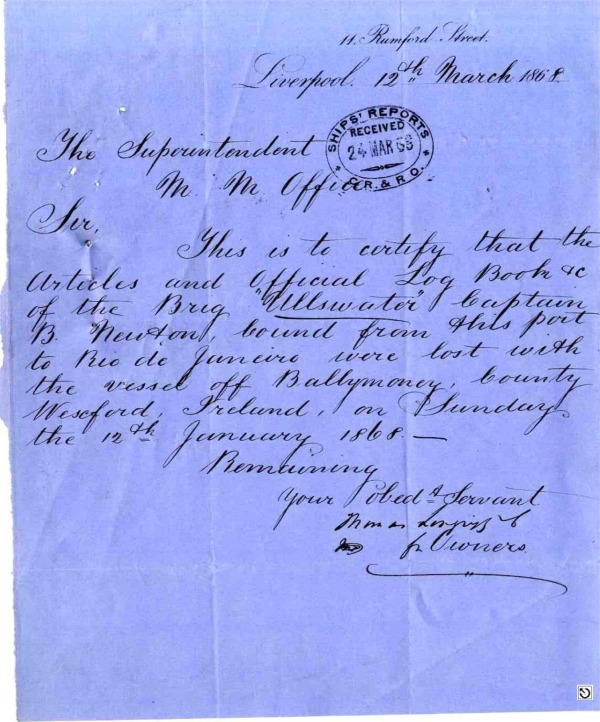 11. Rumford Street.
Liverpool. 12th March 1868
SHIPS' REPORTS
RECEIVED
24 MAR 68
C.R. & R.O.
The Superintendent
M. M Office
Sir,
This is to certify that the
Articles and Official Log Book &c
of the Brig "Ullswater" Captain
B. Newton, bound from this port
to Rio de Janeiro were lost with
the vessel off Ballymoney, County
Wexford, Ireland, on Sunday
the 12th January 1868. —
Remaining
Your obedt Servant
Thomas
for Owners.